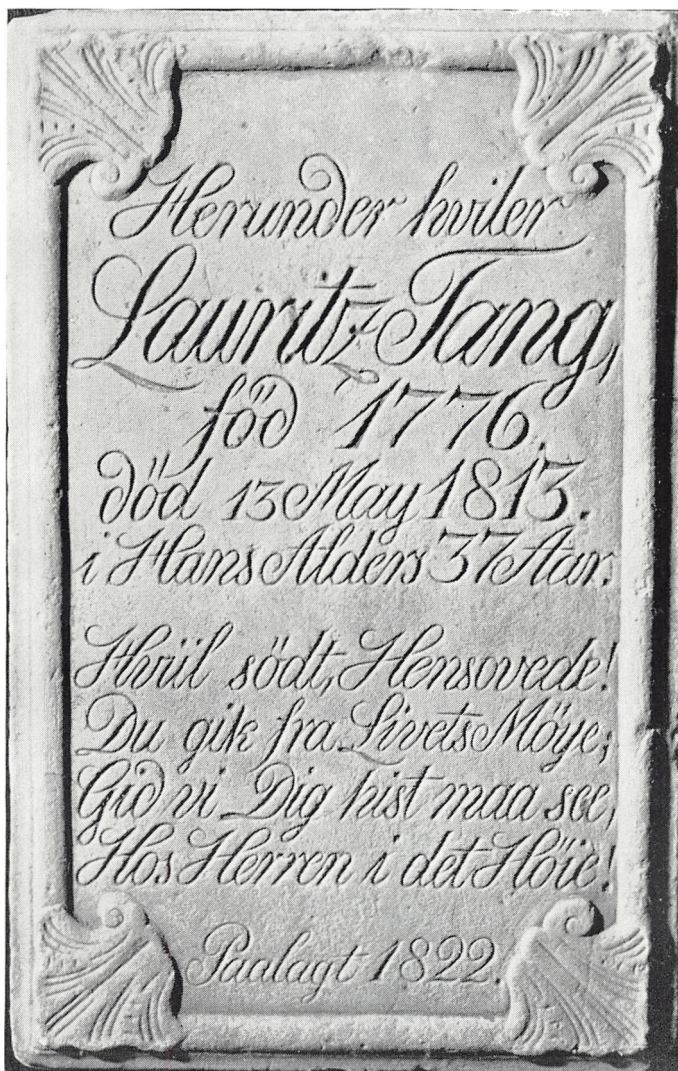 Herunder hviler
Lauritz Tang,
föd 1776.
död 13 May 1813.
i Hans Alders 37 Aar.
Hviil södt, Hensovede!
Du gik fra Livets Möye;
Gid vi Dig hist maa see,
Hos Herren i det Höie!
Paalagt 1822.